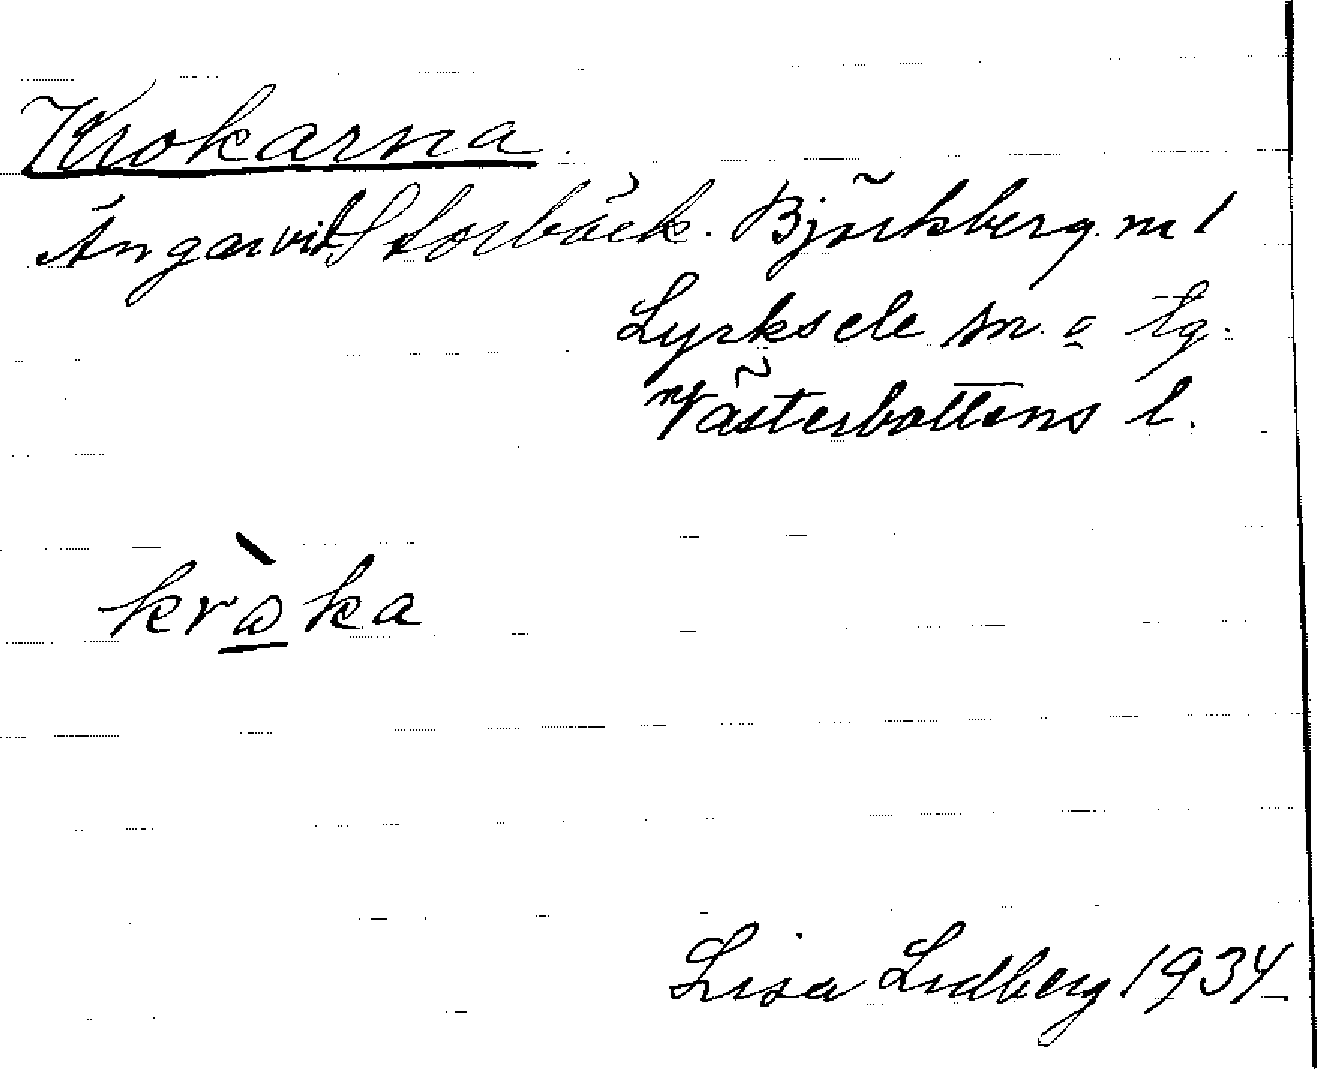 Krokarna.
Ängar vid Storbäck. Björkberg. m 1
Lycksele sn. o lg.
Västerbottens l.
kròka
Lisa Lidberg 1934